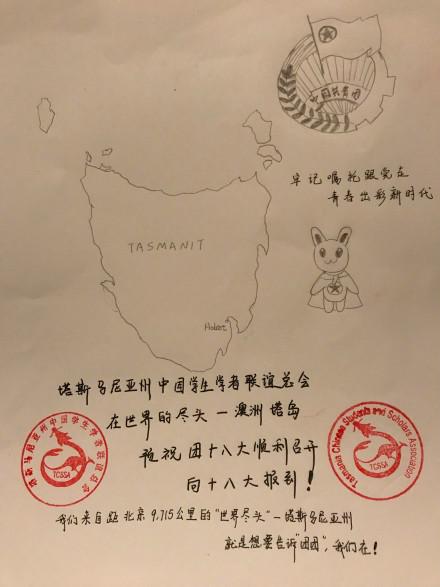 中国共青团
牢记嘱托跟党走
青春出彩新时代
TASMANIT
Hobart
塔斯马尼亚州中国学生学者联谊总会
在世界的尽头—澳洲塔岛
预祝团十八大顺利召开
向十八大报到!
塔斯马尼亚州中国学生学者联谊总会
TCSSA
Tasmanian Chinese Students and Scholars Association
TCSSA
我们来自距北京9,715公里的"世界尽头"—塔斯马尼亚州
就是想要告诉"团团",我们在!